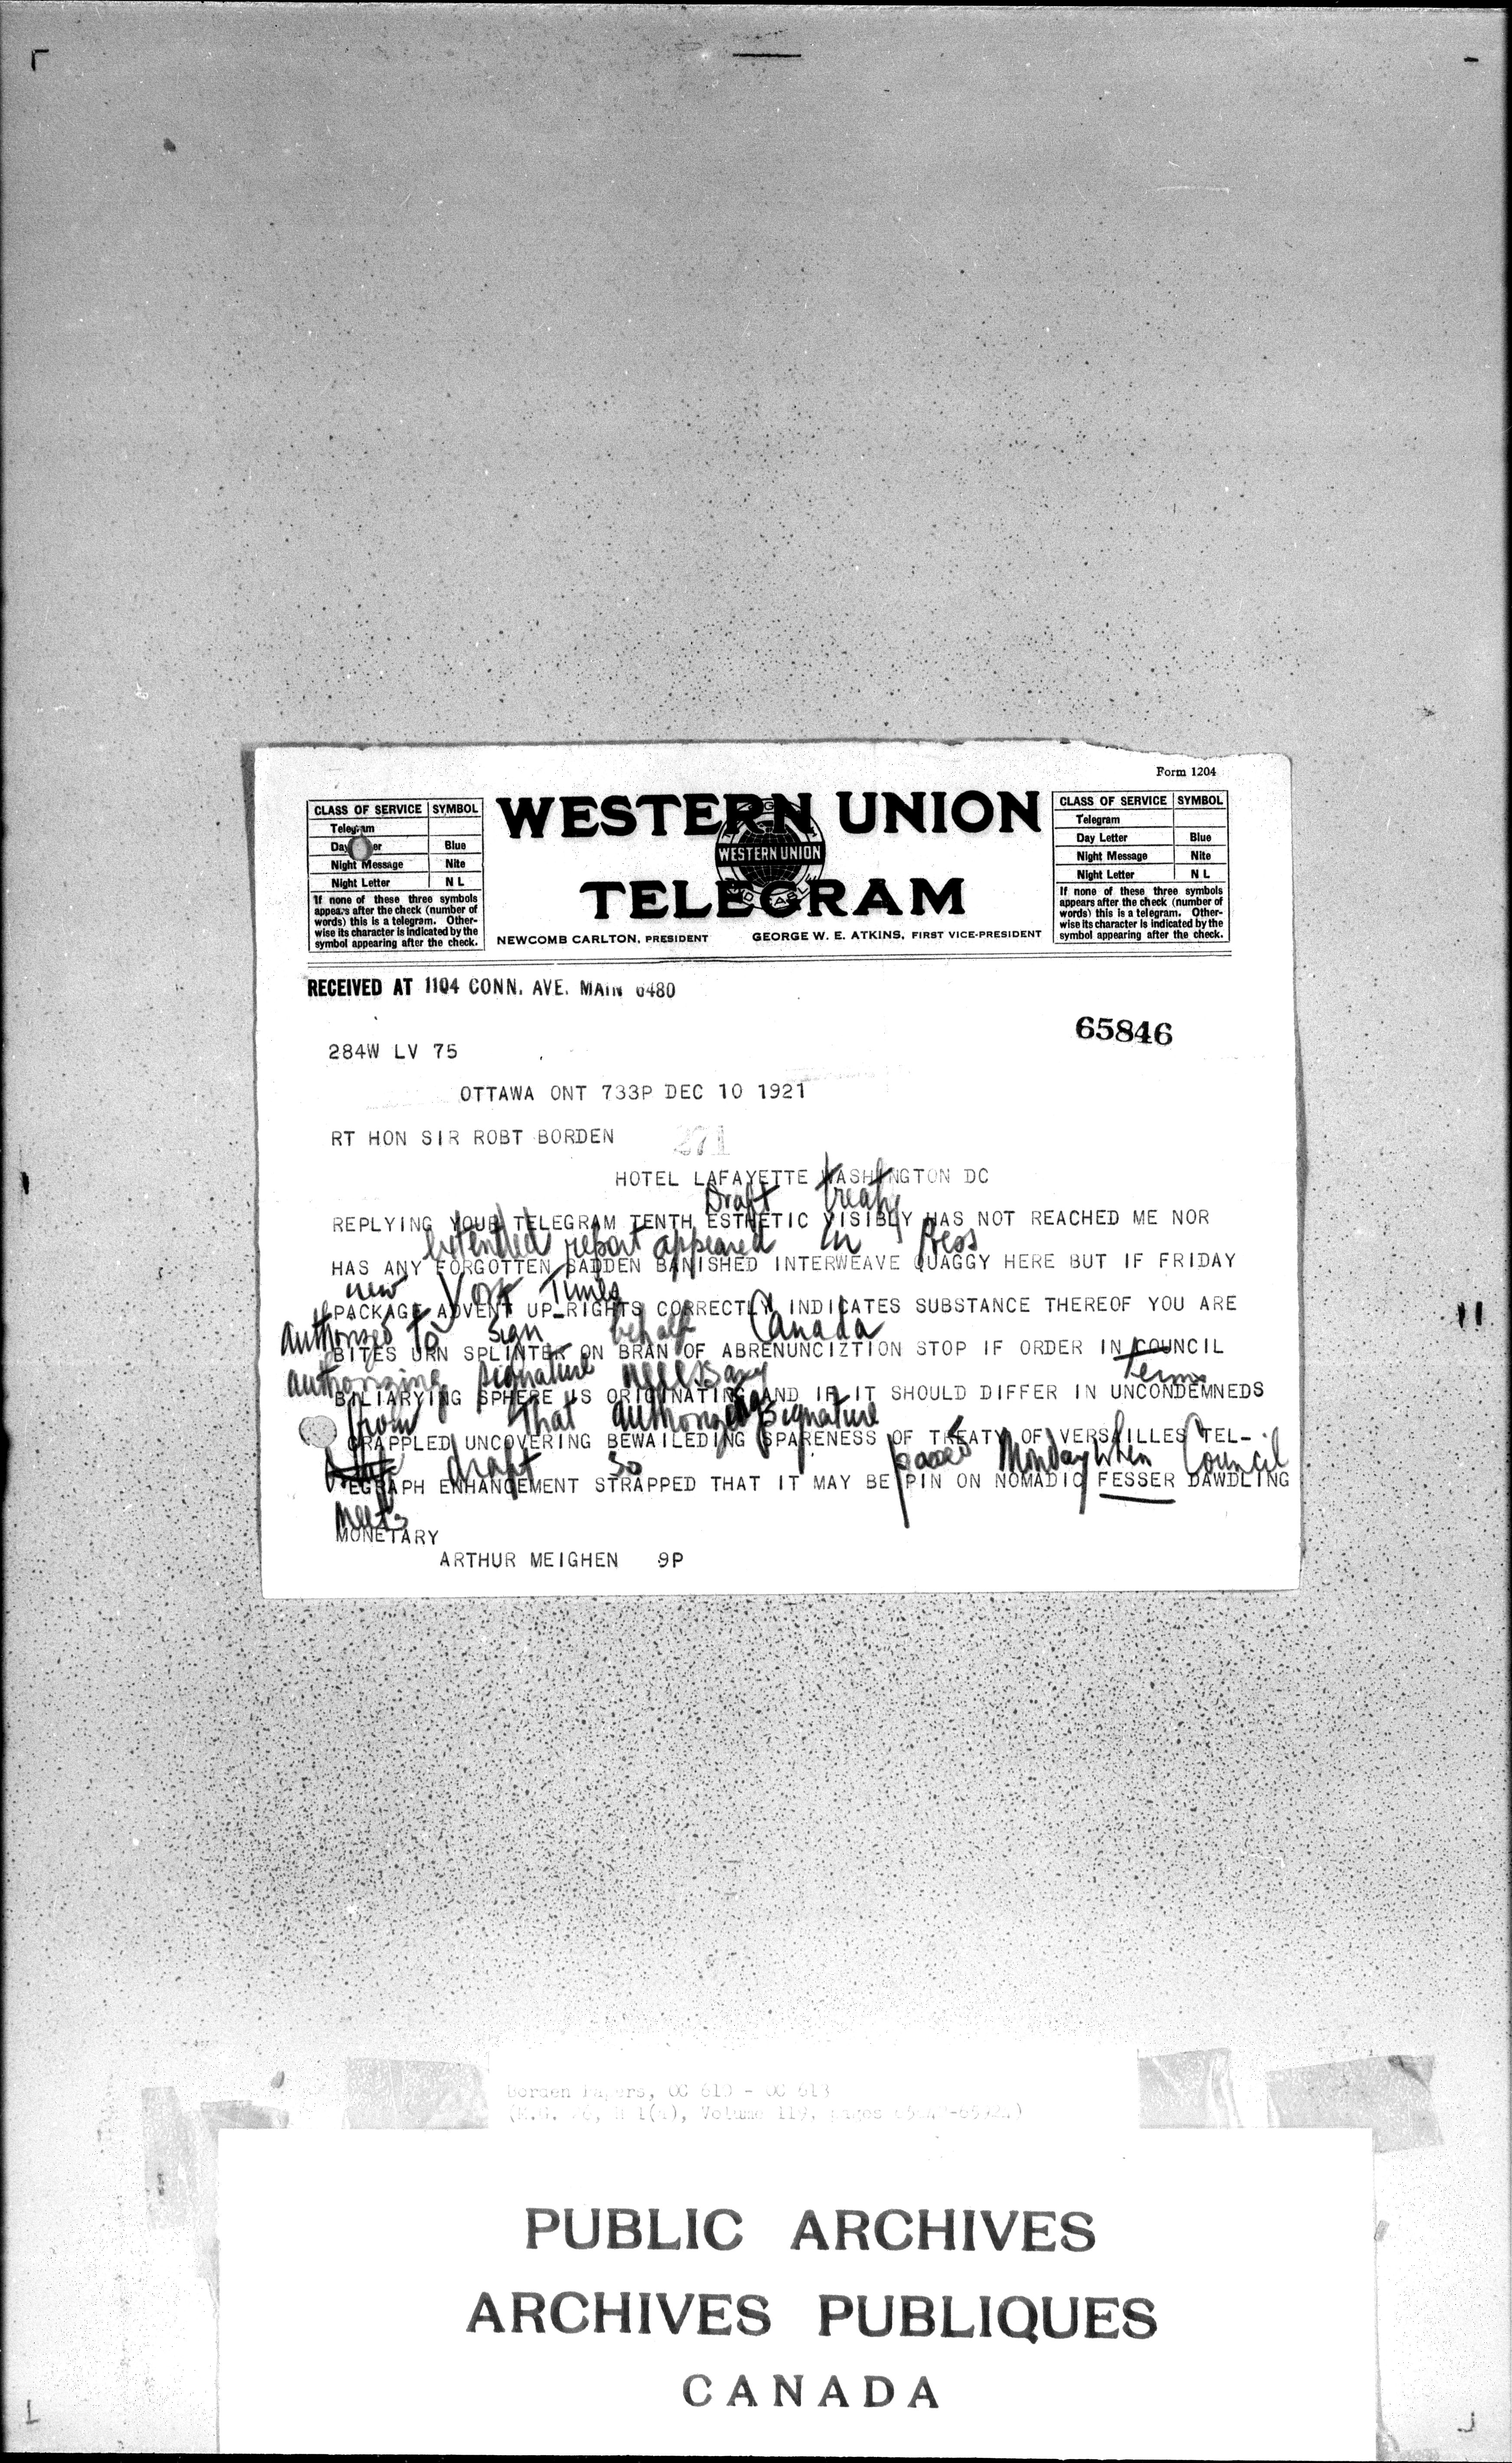 Form 1204
CLASS OF SERVICE SYMBOL
Telegram
Day er Blue
Night Message Nite
Night Letter N L
If none of these three symbols
appears after the check (number of
words) this is a telegram. Other-
wise its character is indicated by the
symbol appearing after the check.
WESTERN UNION
WESTERN UNION
TELEGRAM
NEWCOMB CARLTON, PRESIDENT GEORGE W. E. ATKINS, FIRST VICE-PRESIDENT
CLASS OF SERVICE SYMBOL
Telegram
Day Letter Blue
Night Message Nite
Night Letter N L
If none of these three symbols
appears after the check (number of
words) this is a telegram. Other-
wise its character is indicated by the
symbol appearing after the check.
RECEIVED AT 1104 CONN. AVE. MAIN 6480
65846
284W LV 75
OTTAWA ONT 733P DEC 10 1921
RT HON SIR ROBT BORDEN 271
HOTEL LAFAYETTE WASHINGTON DC
Draft treaty
REPLYING YOUR TELEGRAM TENTH ESTHETIC VISIBLY HAS NOT REACHED ME NOR
extended report appeared in Press
HAS ANY FORGOTTEN SADDEN BANISHED INTERWEAVE QUAGGY HERE BUT IF FRIDAY
new York Times
PACKAGE ADVENT UP-RIGHTS CORRECTLY INDICATES SUBSTANCE THEREOF YOU ARE
authorised to sign behalf Canada
BITES URN SPLINTER ON BRAN OF ABRENUNCIZTION STOP IF ORDER IN COUNCIL
authorizing signature necessary terms
BILIARYING SPHERE US ORIGINATING AND IF IT SHOULD DIFFER IN UNCONDEMNEDS
from that authorizing signature
GRAPPLED UNCOVERING BEWAILEDING SPARENESS OF TREATY OF VERSAILLES TEL-
draft so passed Monday when Council
EGRAPH ENHANCEMENT STRAPPED THAT IT MAY BE PIN ON NOMADIC FESSER DAWDLING
meets
MONETARY
ARTHUR MEIGHEN 9P
Borden Papers, OC 610 - OC 613
PUBLIC ARCHIVES
ARCHIVES PUBLIQUES
CANADA